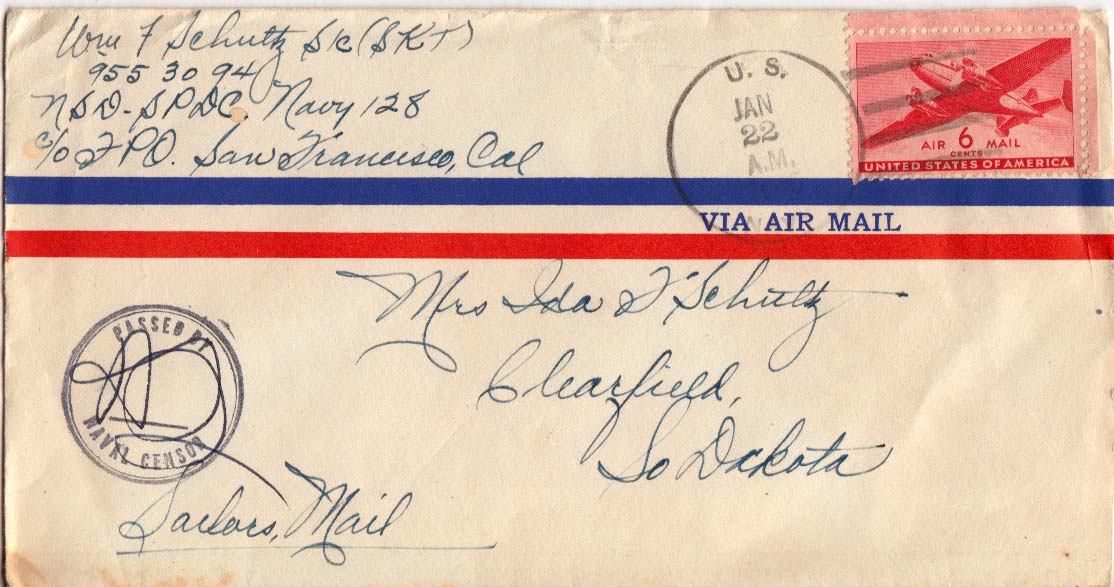 Wm F Schultz S1c (SKT)
955 30 94
NSD-SPDC, Navy 128
c/o FPO. San Francisco, Cal
U. S.
JAN
22
A.M.
AIR 6 MAIL
CENTS
UNITED STATES OF AMERICA
VIA AIR MAIL
Mrs Ida F Schultz
Clearfield,
So Dakota
PASSED BY
NAVAL CENSOR
Sailors, Mail